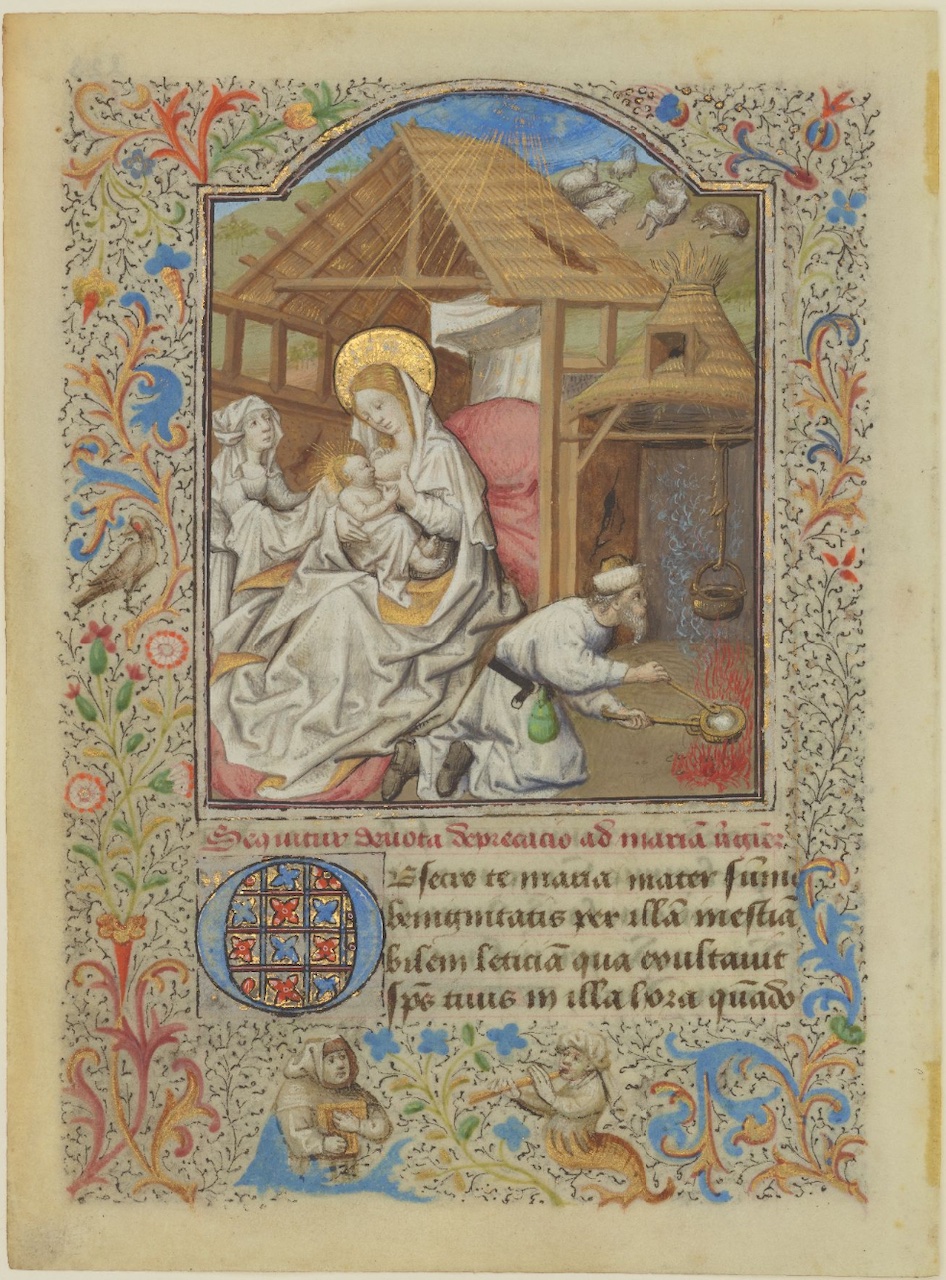 Sequitur deuota deprecacio ad mariā ūgiēꝫ
Obsecro te maria mater sūme
benignitatis per illā inestiā
bilem leticiā qua exultauit
sp̄s tuus in illa hora quādo